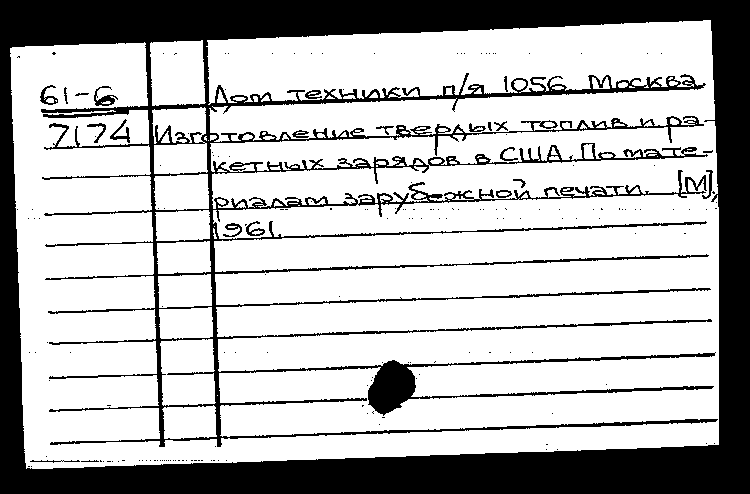 61-6 Дом техники п/я 1056 Москва
7174 Изготовление твердых топлив и ра-
кетных зарядов в США. По мате-
риалам зарубежной печати. [М],
1961.